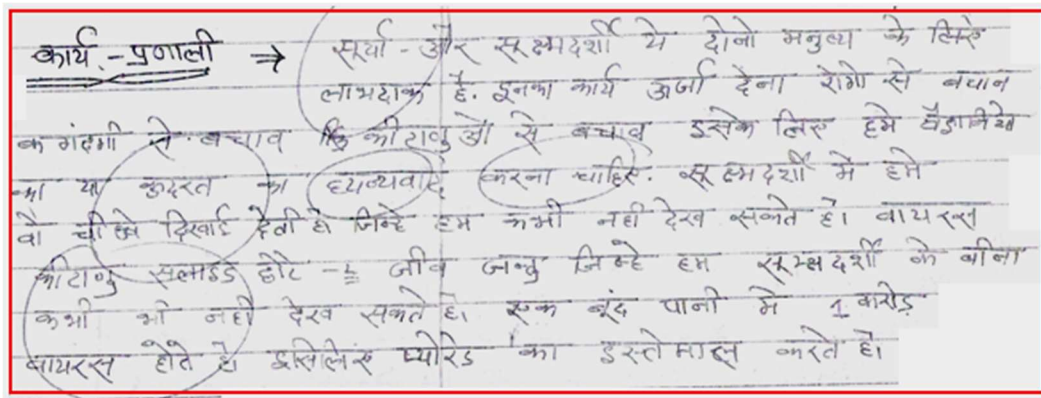 कार्य.-प्रणाली → सूर्या - और सूक्ष्मदर्शी ये दोनो मनुष्य के लिए
लाभदाक है. इनका कार्य ऊर्जा देना रोगो से बचान
क गंदगी से बचाव कीटाणुओं से बचाव इसके लिए हमे
का या कुदरत का ध्यन्यवाद करना चाहिए. सूक्ष्मदर्शी मे हमे
वो चीजे दिखाई देती है जिन्हे हम कभी नही देख सकते है। वायरस
कीटाणु सलाइड छोटे - २ जीव जन्तु जिन्हे हम सूक्ष्मदर्शी के बीना
कभी भी नही देख सकते है। एक बूंद पानी मे 1 करोड़
वायरस होते है। इसिलिए का इस्तेमाल करते है।